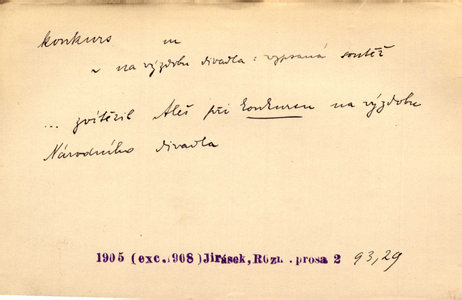 konkurs m
~ na výzdobu divadla: vypsaná soutěž
... zvítězil Aleš při konkursu na výzdobu
Národního divadla
1905 (exc. 1908) Jirásek, Rozm. prosa 2 93,29